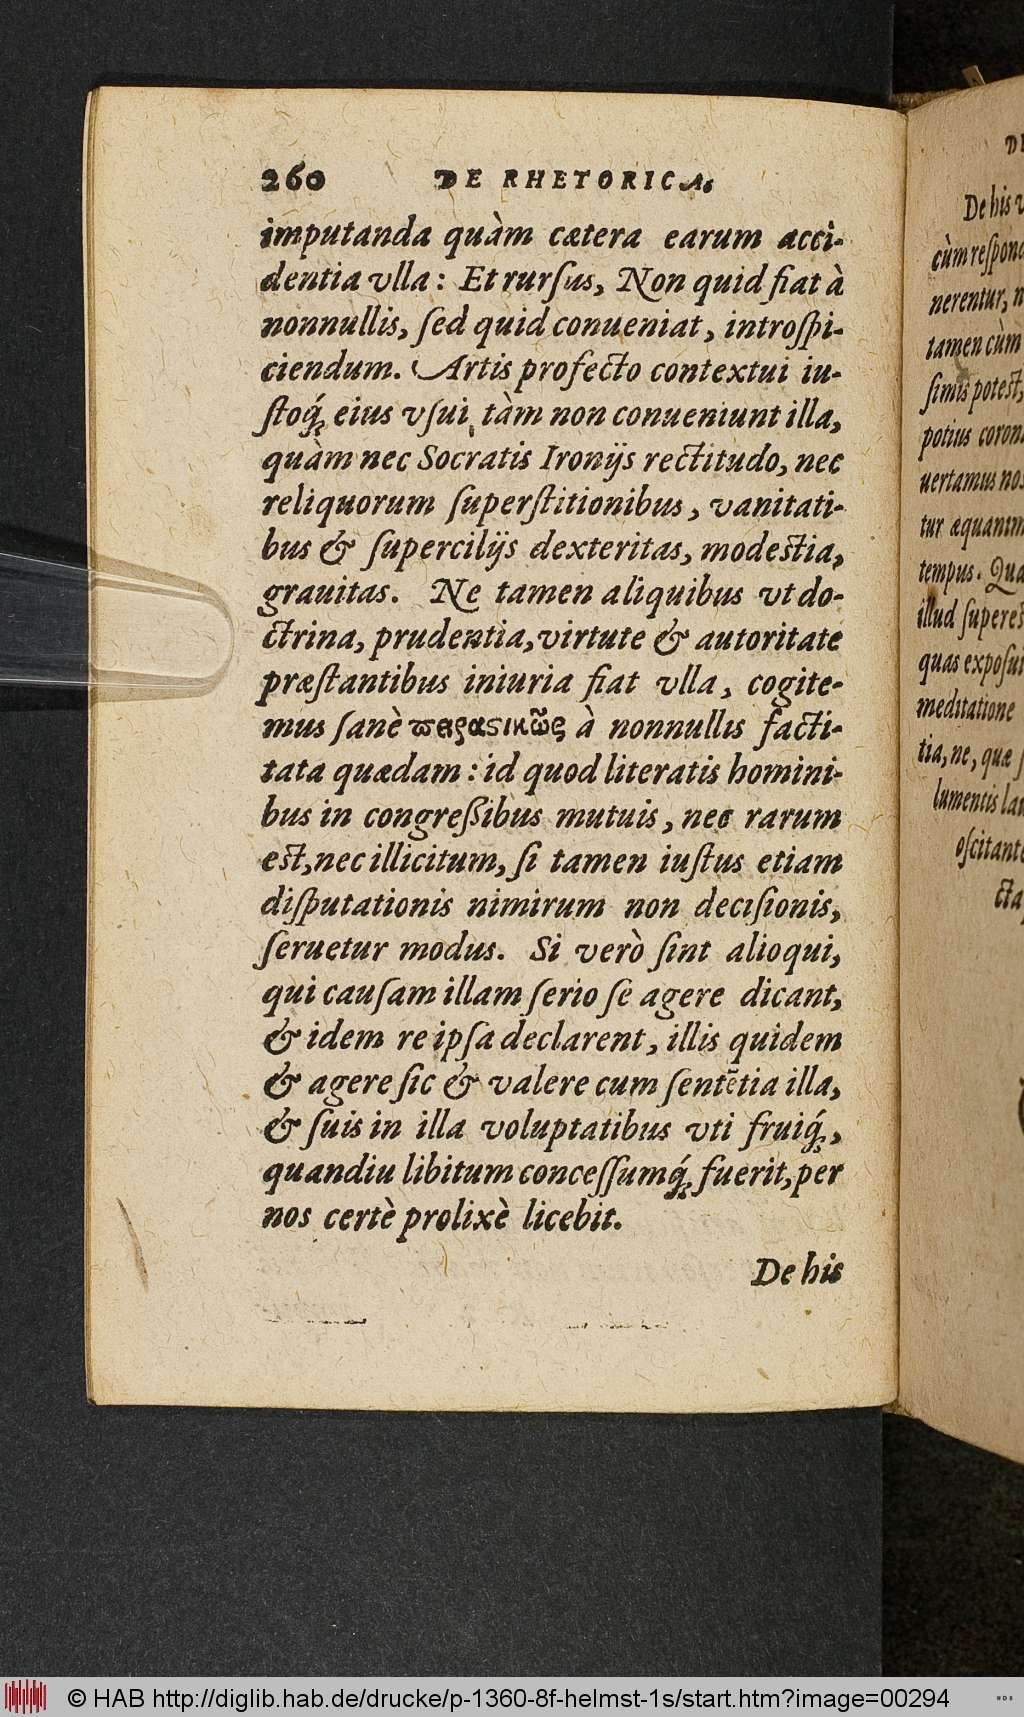 260 DE RHETORICA.
imputanda quàm cætera earum acci-
dentia vlla: Et rurſus, Non quid fiat à
nonnullis, ſed quid conueniat, introſpi-
ciendum. Artis profecto contextui iu-
ſtoq́; eius vſui, tàm non conueniunt illa,
quàm nec Socratis Ironijs rectitudo, nec
reliquorum ſuperſtitionibus, vanitati-
bus & ſupercilijs dexteritas, modestia,
grauitas. Ne tamen aliquibus vt do-
ctrina, prudentia, virtute & autoritate
præſtantibus iniuria fiat vlla, cogite-
mus ſanè πειραςικῶς à nonnullis facti-
tata quædam: id quod literatis homini-
bus in congreßibus mutuis, nec rarum
est, nec illicitum, ſi tamen iuſtus etiam
diſputationis nimirum non deciſionis,
ſeruetur modus. Si verò ſint alioqui,
qui cauſam illam ſerio ſe agere dicant,
& idem re ipſa declarent, illis quidem
& agere ſic & valere cum ſentẽtia illa,
& ſuis in illa voluptatibus vti fruiq́;,
quandiu libitum conceſſumq́; fuerit, per
nos certè prolixè licebit.
De his
De his
cùm reſpon
nerentur,
tamen cùm
ſimis potest,
potius coron
uertamus nos
tur æquanim
tempus. Qua
illud ſuperest
quas expoſui
meditatione
tia, ne, quæ
lumentis la
oſcitante
cta
© HAB http://diglib.hab.de/drucke/p-1360-8f-helmst-1s/start.htm?image=00294